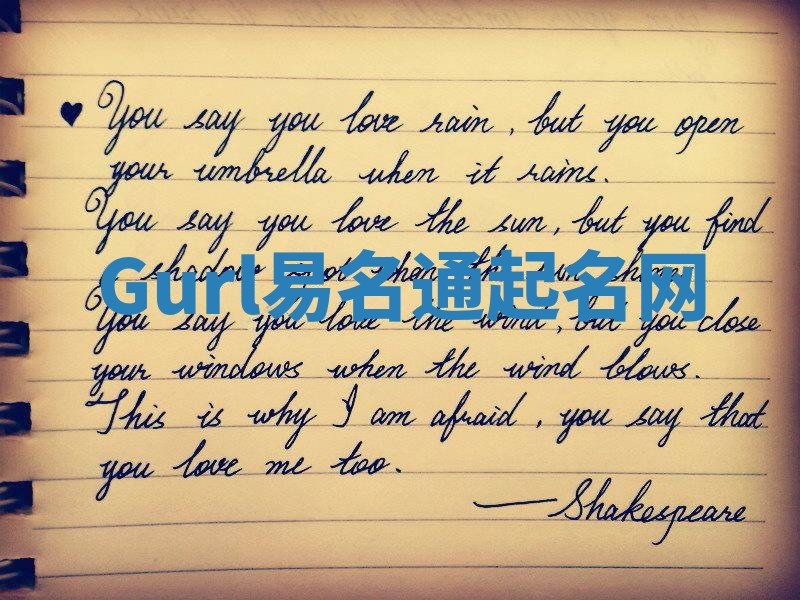 You say you love rain, but you open
your umbrella when it rains.
You say you love the sun, but you find
shadow spot when the sun shines.
Gurl易名通起名网
You say you love the wind, but you close
your windows when the wind blows.
This is why I am afraid, you say that
you love me too.
—Shakespeare